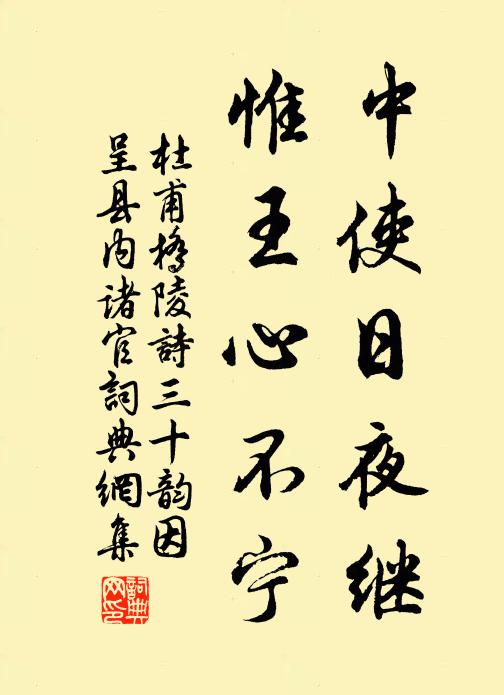 中使日夜继
惟王心不宁
杜甫橋陵詩三十韵因
呈县内诸官詞典網集
詞典網印